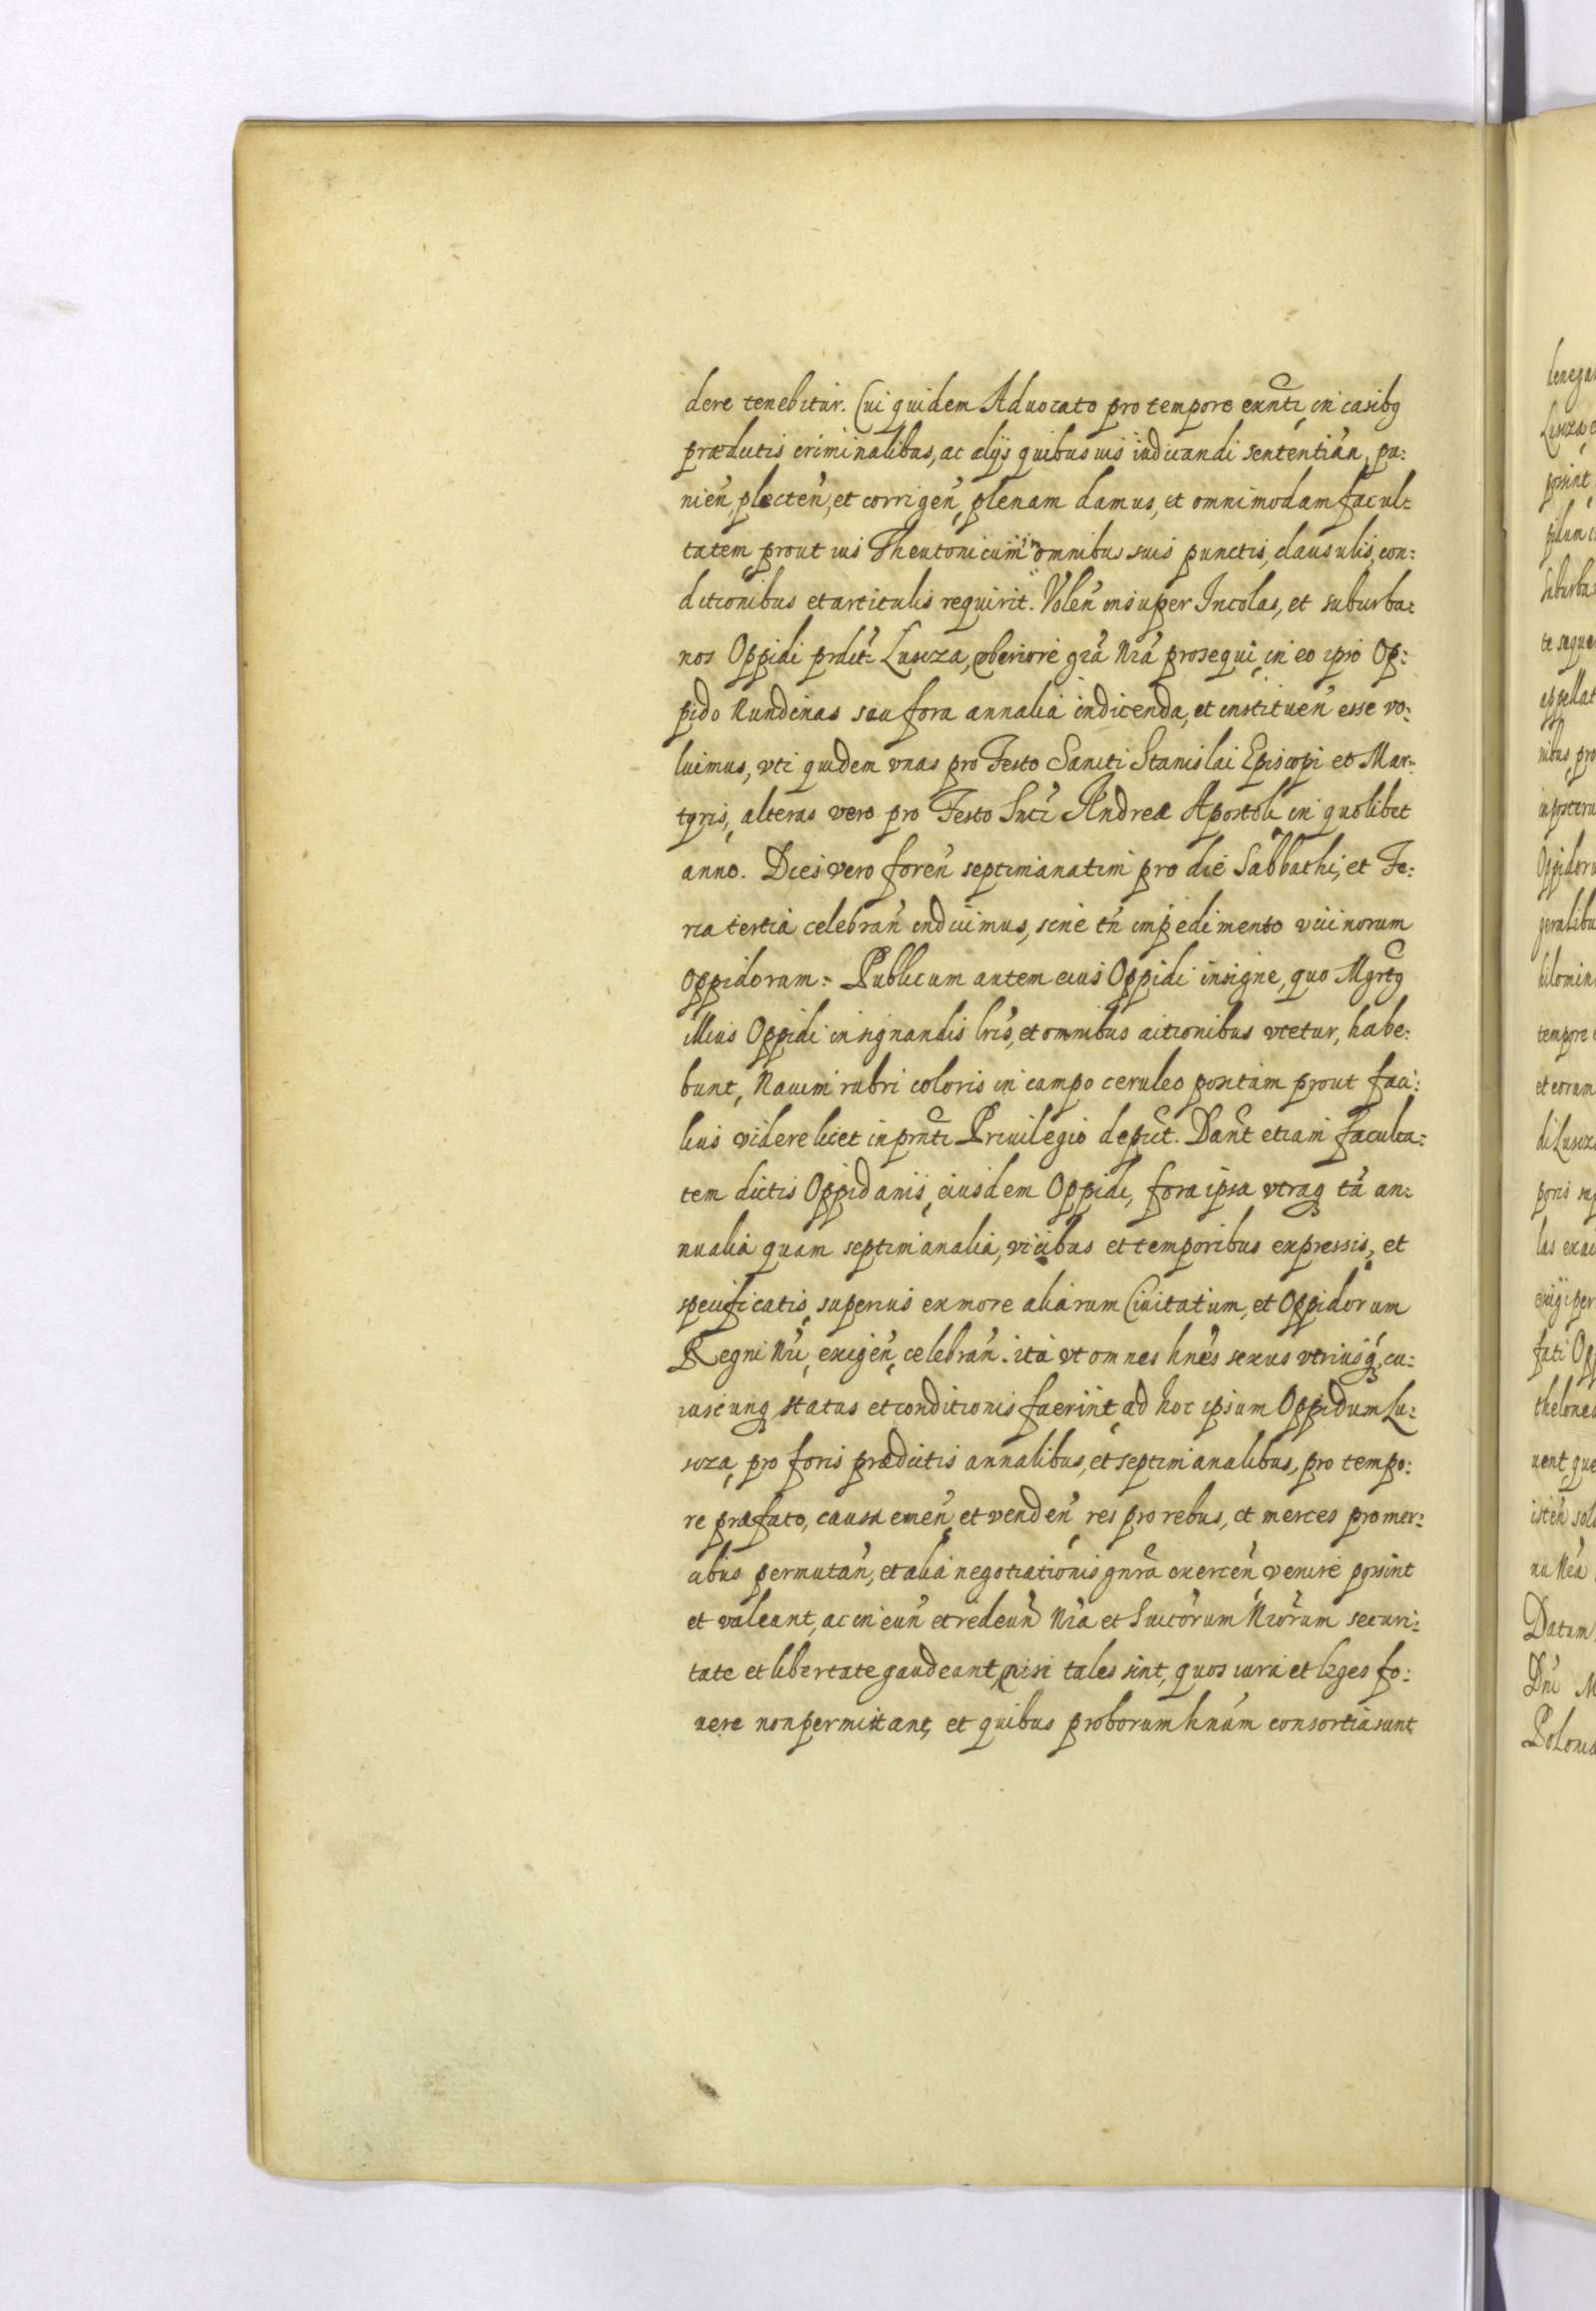 dere tenebitur. Cui quidem Aduocato pro tempore exñti, in casibꝫ
prædictis criminalibus, ac alijs quibusuis iudicandi sententiañ, pu:
nień, plecteń, et corrigeń, plenam damus, et omnimodam facul:
tatem, prout ius Theutonicum in omnibus suis punctis, clausulis, con:
ditionibus et articulis requirit. Voleń insuper Incolas, et suburba:
nos Oppidi prdict: Luscza, vberiore gr̃a Nr̃a prosequi, in eo ipso Op:
pido Nundinas seu fora annalia indicenda, et instituen̄ esse vo:
luimus, vti quidem vnas pro Festo Sancti Stanislai Episcopi et Mar:
tyris, alteras vero pro Festo Sncti Andreæ Apostoli in quolibet
anno. Dies vero foreń septimanatim pro die Sabbathi, et Fe:
ria tertia celebrań indicimus, sine tń impedimento vicinorum
oppidorum: Publicum autem eius Oppidi insigne, quo Mgrtꝫ
illius Oppidi in signandis lris, et omnibus actionibus vtetur, habe:
bunt, Nauim rubri coloris in campo ceruleo positam prout faci:
lius videre licet in prñti Priuilegio depict. Dant etiam faculta:
tem dictis Oppidanis, eiusdem Oppidi, fora ipsa vtraq tã an:
nualia quam septimanalia, vicibus et temporibus expressis, et
specificatis, superius ex more aliarum Ciuitatum, et Oppidorum
Regni Nri, exigeń, celebrań. ita vt omnes hńes sexus vtriusq, cu:
iuscunq status et conditionis fuerint, ad hoc ipsum Oppidum Lu:
scza, pro foris prædictis annalibus, et septimanalibus, pro tempo:
re præfato, causa emeń, et vendeń res pro rebus, et merces pro mer:
cibus permutań, et alia negotiationis gnra exerceń, venire possint
et valeant, ac in euń et redeuń Nra et Succorum Nrorum securi:
tate et libertate gaudeant, nisi tales sint, quos iura et leges fo:
uere non permittant, et quibus proborum hnum consortia sunt